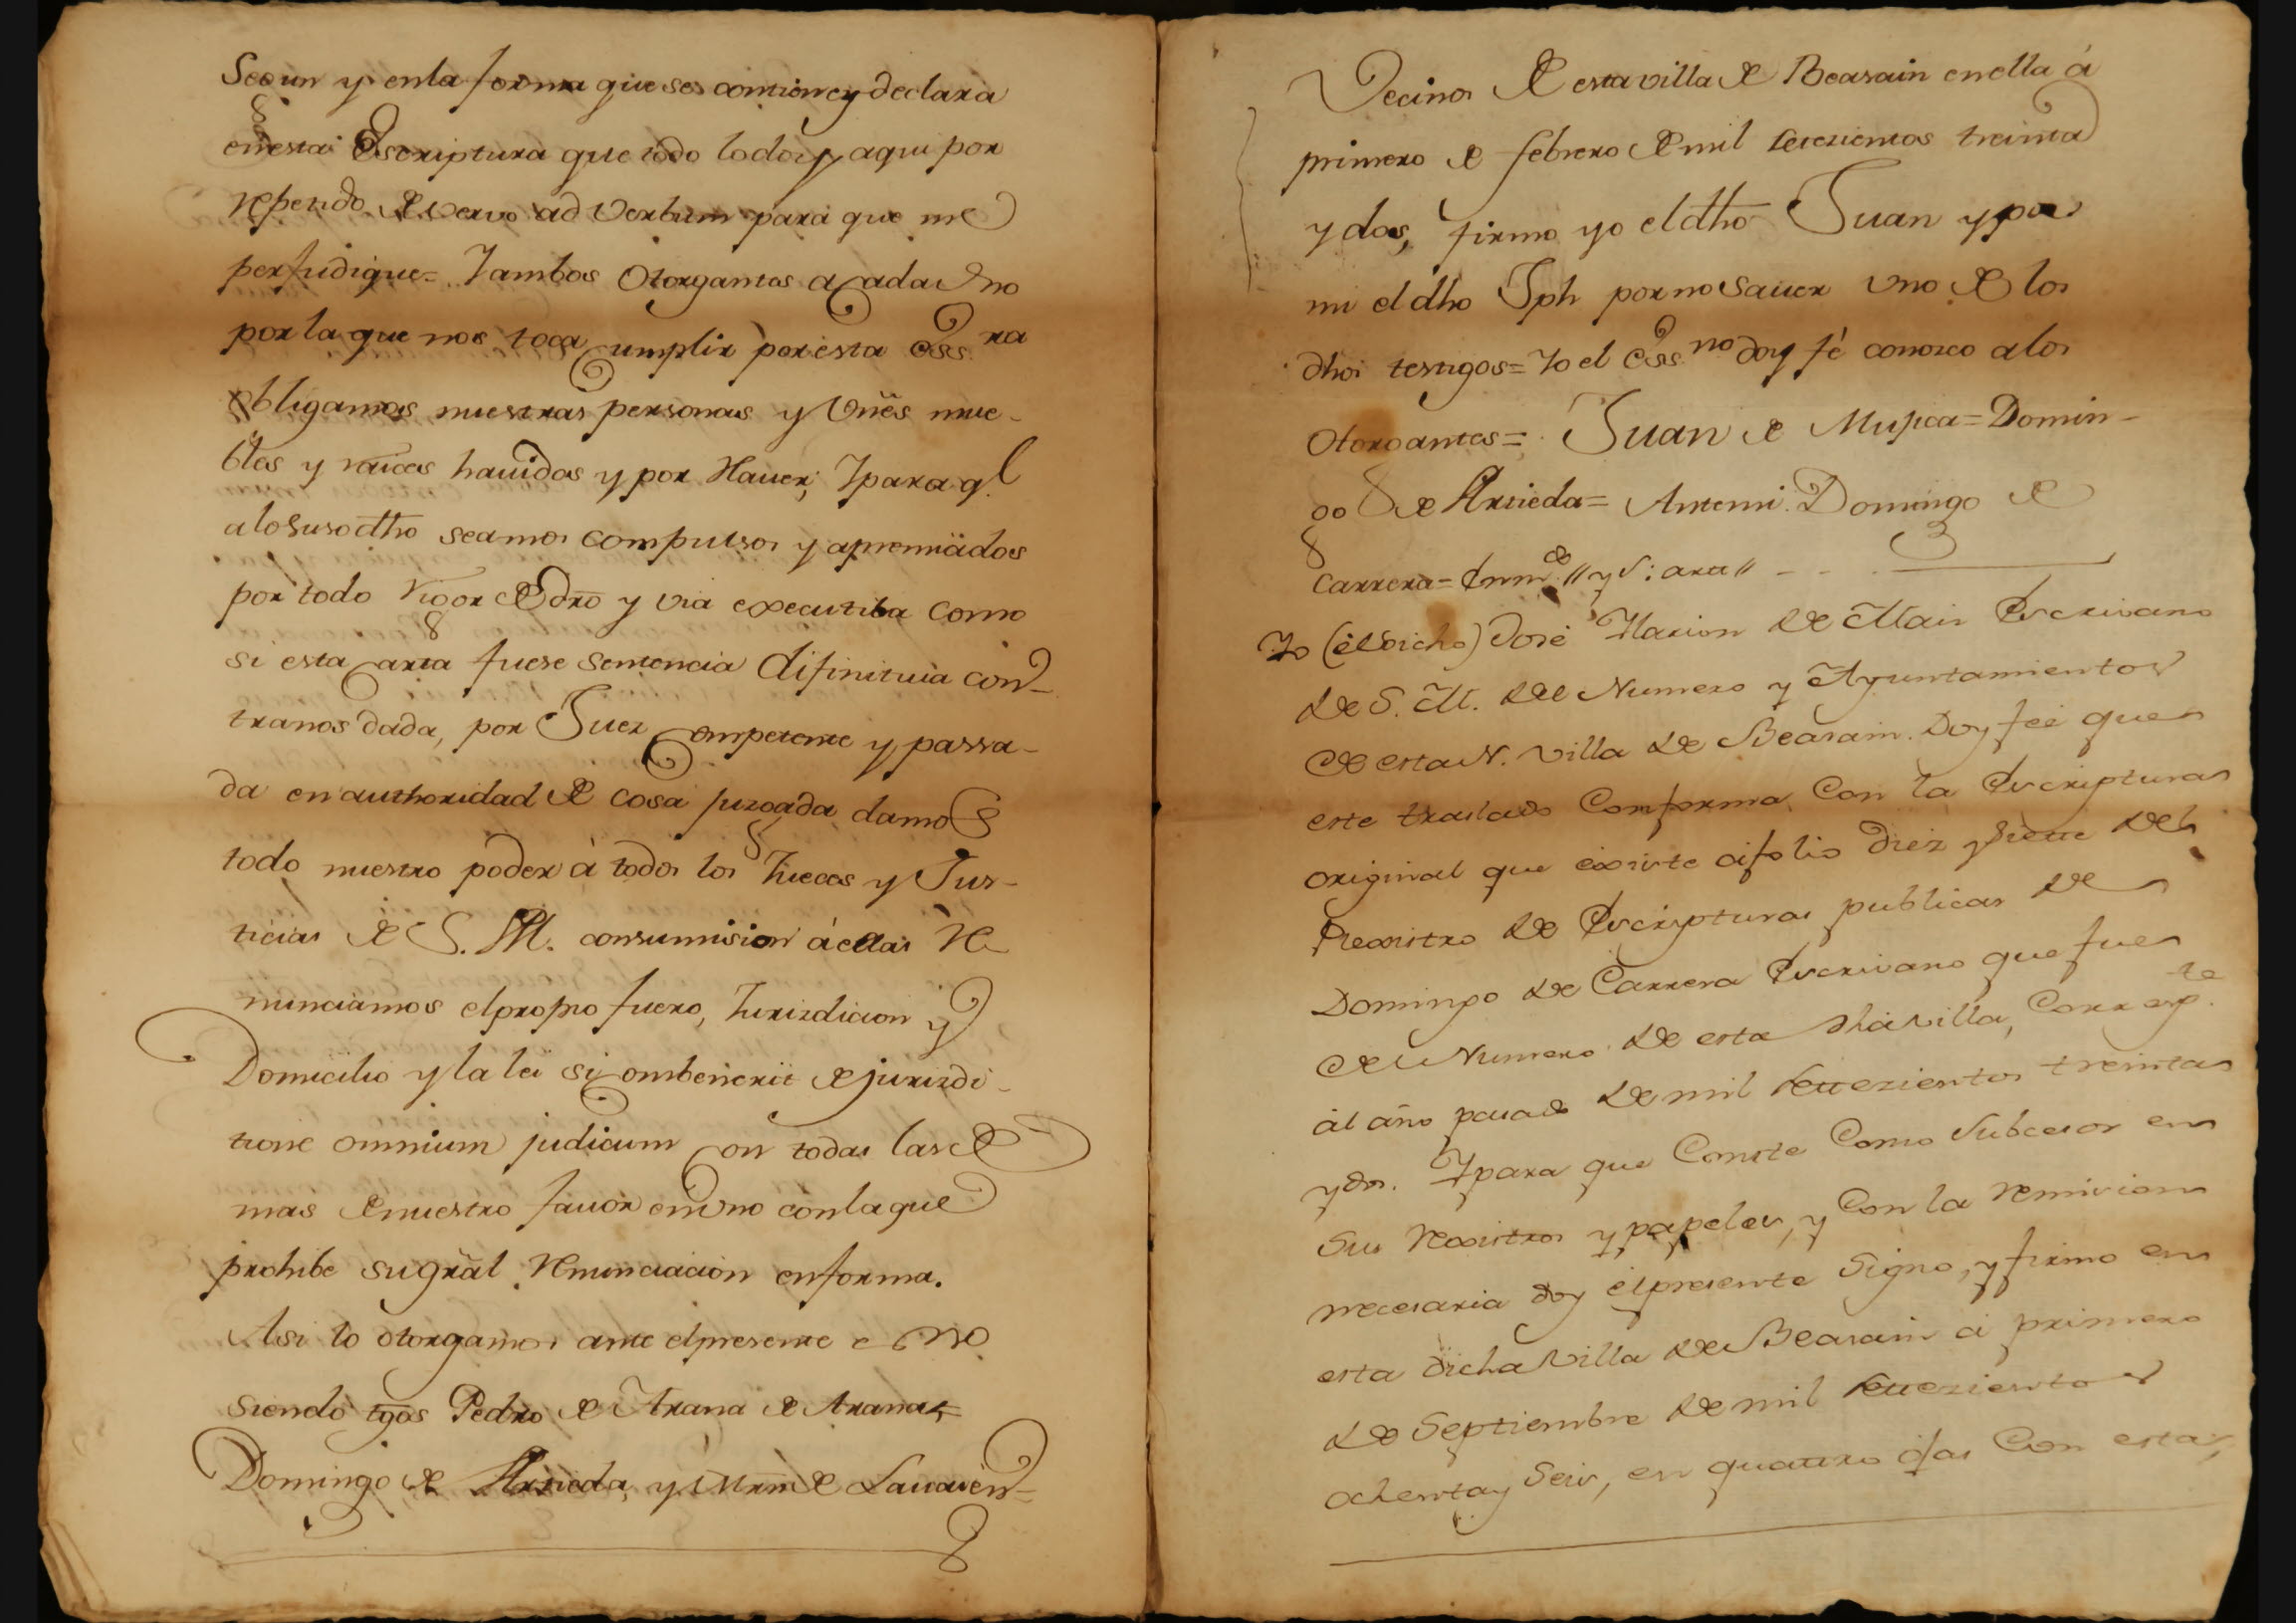 Segun y en la forma que se contiene y declara
en esta Escriptura que todo lo doy aqui por
repetido de vervo ad verbum para que me
perjudique= Yambos Otorgantes a Cada Uno
por la que nos toca Cumplir por esta Ess.ra
obligamos nuestras personas y Vñes mue-
bles y raices hauidos y por Hauer; Ypara q.e
alo Susodho seamos compulsos y apremiados
por todo rigor de dro y via executiba como
si esta Carta fuese sentencia difinitiuia con-
tra nos dada, por Juez Competente y passa-
da en authoridad de cosa juzgada damos
todo nuestro poder à todos los Jueces y Jus-
ticias de S. M. con sumision à ellas Re
nunciamos el propio fuero, Jurisdicion y
Domicilio y la lei si Combenerit de jurisdi-
tione omnium judicum Con todas las de
mas de nuestro fauor en Uno con la que
prohibe su gral Renunciacion en forma.
Asi lo otorgamos ante el presente esno
siendo tgos Pedro de Arana de Arana=
Domingo de Arrieda, y Mrn de
Vecinos de esta villa de Beasain en ella à
primero de febrero de mil setezientos treinta
y dos, firmo yo el dho Juan y por
mi el dho Jph por no Sauer Uno de los
dhos testigos= Yo el Ess.no doy fè conozco a los
Otorgantes= Juan de Mujica= Domin-
go de Arrieda= Antemi. Domingo de
Carrera= Enm.do // y S: ara //
Yo (èl dicho) José Harion de Mais Escrivano
de S. M. del Numero y Ayuntamiento
de esta N. Villa de Beasain. Doy feé que
este traslado Conforma Con la Escriptura
original que existe aìfolio diez y siette del
Rexistro de Escripturas publicas de
Domingo de Carrera Escrivano que fue
del Numero de esta dha Villa, Corresp.te
al año pasado de mil settezientos treinta
y dos. Ypara que Conste Como Subcesor en
Sus rexistros y papeles, y Con la remision
necesaria doy èl presente Signo, y firmo en
esta dicha Villa de Beasain à primero
de Septiembre de mil settezientos
ochenta y Seis, en quattro ojas Con esta,